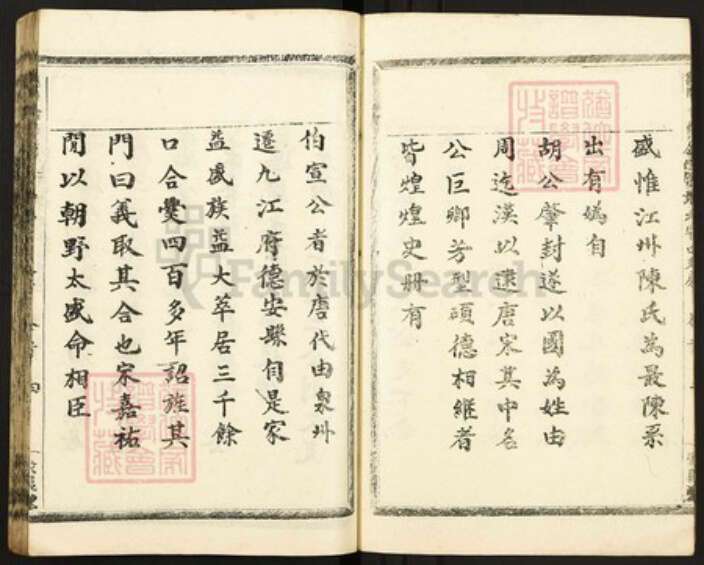 盛惟江州陳氏為最陳系
出有媯自
胡公肇封遂以國為姓由
周迄漢以逮唐宋其中名
公巨鄉芳型碩德相繼者
皆煌煌史冊有
伯宣公者於唐代由泉州
遷九江府德安縣自是家
益盛族益大萃居三千餘
口合爨四百多年詔旌其
門曰義取其合也宋嘉祐
間以朝野太盛命相臣
FamilySearch